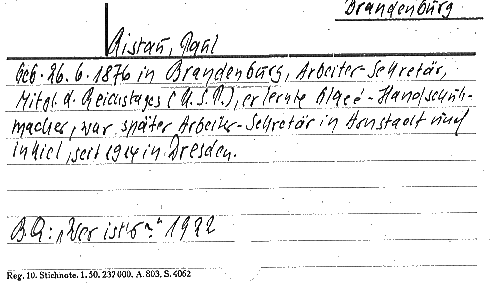 Brandenburg
Ristau, Paul
Geb. 26.6.1876 in Brandenburg, Arbeiter-Sekretär,
Mitgl. d. Reichstages (U.S.P.), erlernte Glacé-Handschuh-
macher, war später Arbeiter-Sekretär in Arnstadt und
in Kiel, seit 1914 in Dresden.
B.Q: „Wer ist's?" 1922
Reg. 10. Stichnote. 1. 50. 237 000. A. 803, S. 4062